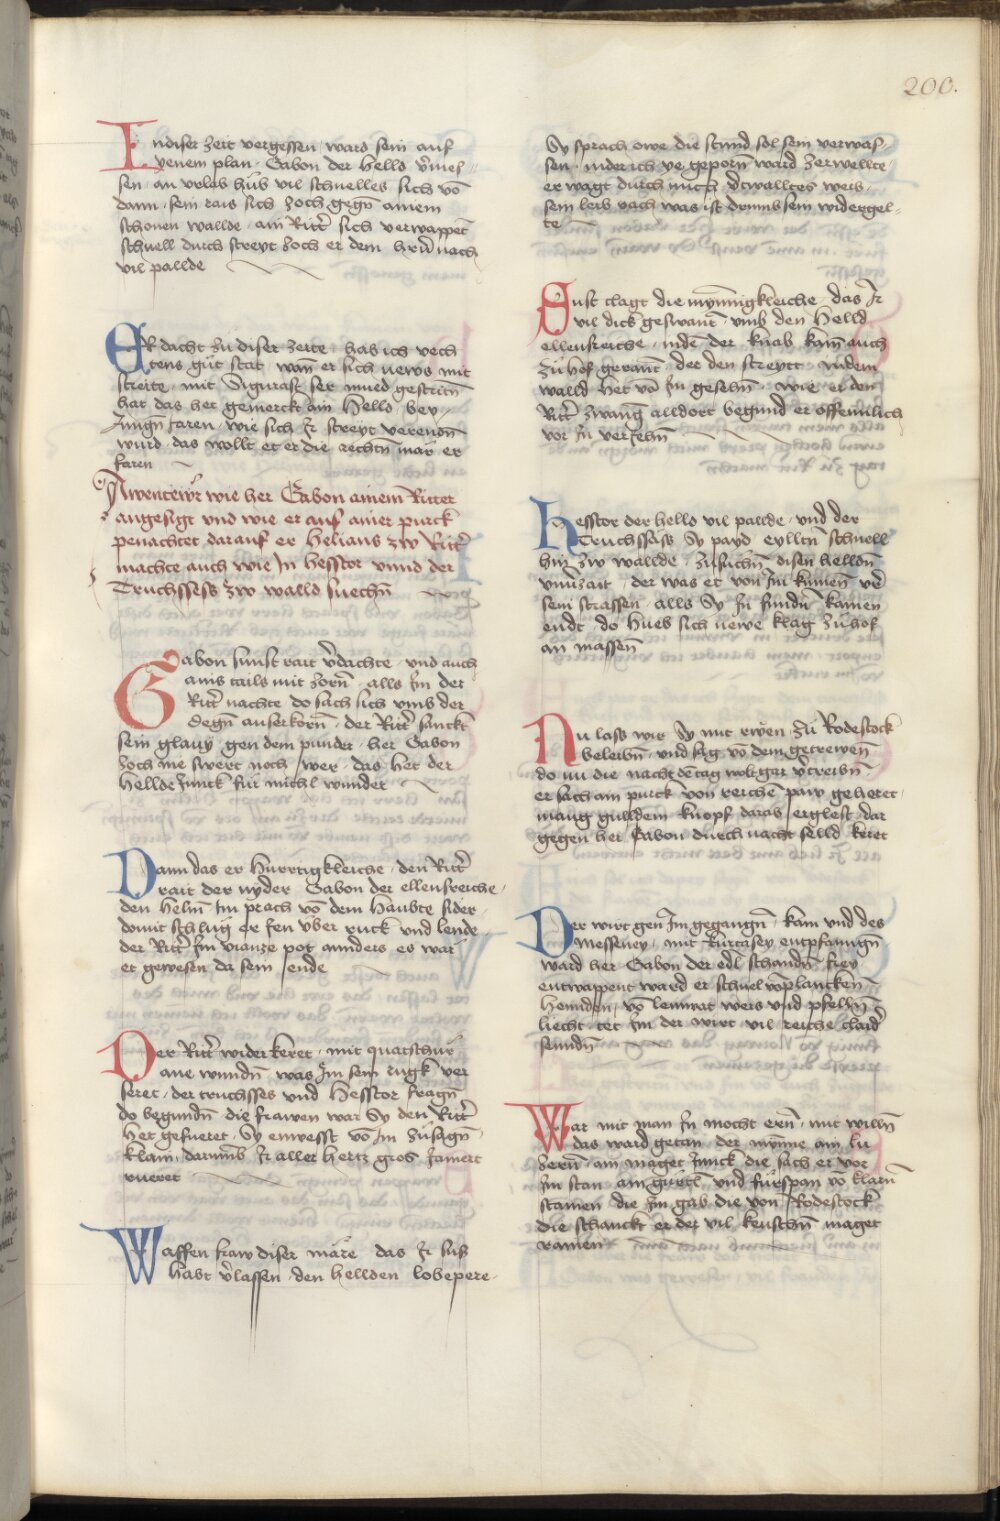 200.
In diser zeit vergessen / wars sein auf
yenem plan / Gabon der helld v̈mes-
sen / an vrlab hůb vil schnelles sich võ
dann / sein rais sich zoch gegñ ainem
schonen wallde / ain Rittr̃ sich verwappet
schnell durch streyt zoch er dem hr̃n nach
vil pallde
ER dacht zu diser zeite / hab ich vech
tens gůt stat / wañ er sich news mit
streite / mit Sigurast ser mued gestritñ
hat das het gemerckt ain helld / bey
Jungñ Jaren / wie sich Ir streyt verendñ
wurd / das wollt et er die rechtñ mär er
faren
Awentewr̃ wie her Gabon ainem Ritter
angesigt vnd wie er auf ainer purck
penachtet darauf er Helians zw Rittr̃
machte auch wie In Hesstor vnnd der
Truchssess zw walld suechñ
Gabon sunst rait v̈dachte / vnd auch
ains tails mit zorñ / alls Im der
Rittr̃ nachte do sach sich vmb der
degñ auserkorñ / der Rittr̃ sanckt
sein glauy gen dem punder / her Gabon
zoch nie swert noch wer / das het der
hellde Junck für michl wunder
Dann das er hurrtigkleiche / den Rittr̃
rait der nyder Gabon der ellensreiche /
den helm̃ Im prach võ dem haubte sider
domit schlug er Jen vber ruck vnd lende
der Rittr̃ Im vianze pot annders es wär
et gewesen da sein ennde
Der Rittr̃ wider keret / mit quatschur̃
ane wundñ was Im sein rugk ver
seret / der truchsses vnd Hesstor fragñ
do begundñ die frawen war Sy den Rittr̃
het gefueret / Sy enwesst võ Im zůsagñ
klain / darumb Ir aller hertz gros Jamert
rueret
Waffen fraw diser märe das Ir suß
habt v̈lassen den hellden lobepere.
Sy sprach owe die stund sol sein verwas-
sen / inder ich ye geporñ ward zerwellte
er wagt durch mich dewalltes weis /
sein leib vach was ist denn sein widergel-
te
Sust clagt die mynnigkleiche / das Ir
vil dick geswant / vmb den helld
ellensreiche / inde der knab kam auch
zů hof gerannt / der den streytt / indem
walld het võ In gesehñ / wie er den
Rittr̃ zwang alldort begund er offennlich
vor In verjehñ
Hesstor der helld vil pallde / vnd der
Truchssäss Sy payd eylltñ schnell
hin zw wallde / zusuchñ disen helldñ
vnuerzait / der was et von In kumeñ vñ
sein strassen / alls Sy In fundñ kamen
endt do hueb sich newe klag zů hof
an massen
Nu lass wir Sy mit rwen / zů Rodestock
beleibñ / vnd sag võ dem getrewen
do nu die nacht dẽ tag wolt gar v̈treibñ /
er sach ain purck von reichẽ paw geheret /
manig gulldein knopf darab erglest dar
gegen her Gabon durch nacht selld keret
Der wirt gen Im gegangñ / kam vnd des
Messeney / mit kurtasey entpfanngñ
ward her Gabon der edl schandñ frey
entwappent ward er schnel võ plancken
hennden / võ leinwat weis vnd pfellñ
liecht tet Im der wirt vil reiche claid
senndñ
War mit man In mocht erñ / mit willñ
das ward getan / der mynne ain lu
zerñ / ain maget Junck die sach er vor
Im stan / ain gürtl vnd fürspan võ klarñ
stainen / die Im gab die von Rodestock
die schanckt er der vil keuschñ maget
rainen